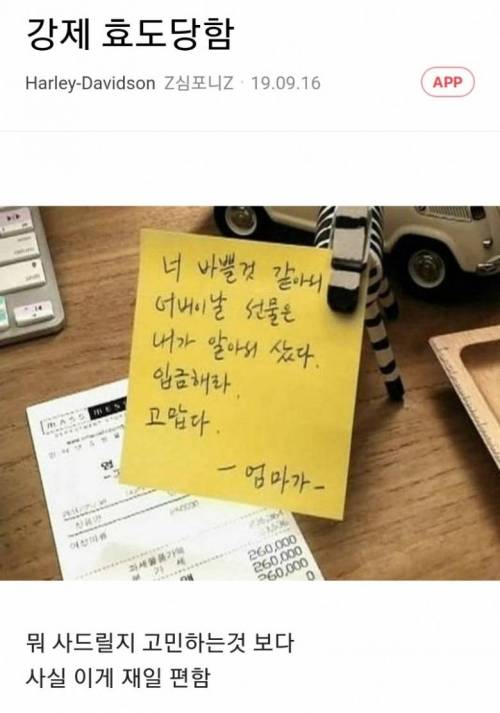 강제 효도당함
Harley-Davidson Z심포니Z · 19.09.16
APP
너 바쁠것 같아서
어버이날 선물은
내가 알아서 샀다.
입금해라.
고맙다.
- 엄마가 -
MASS
영
상품명
여성의류
과세물품가액
부 가 세
260,000
260,000
260,000
0
뭐 사드릴지 고민하는것 보다
사실 이게 재일 편함